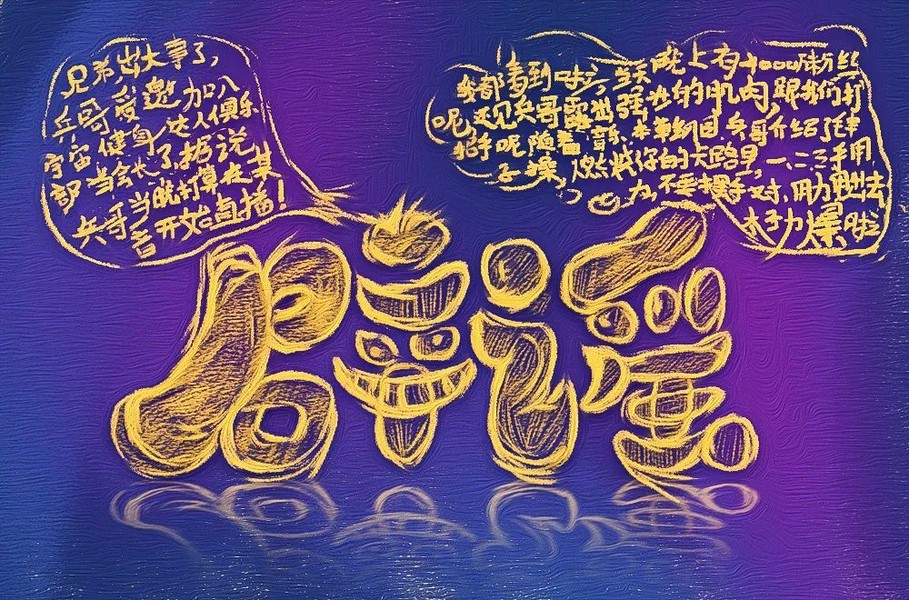 兄弟出大事了,
兵哥受邀加入
宇宙健身达人俱乐
部当会长了,据说
兵哥当晚打算在某
音开始直播!
我都看到啦,当天晚上有粉丝
呢,还见兵哥露出强壮的肌肉,跟我们打
招呼呢,随着音乐,兵哥介绍了
操,燃烧你的一二三手用
力,不要摆手对,用力甩出去
劲爆啦
辟谣